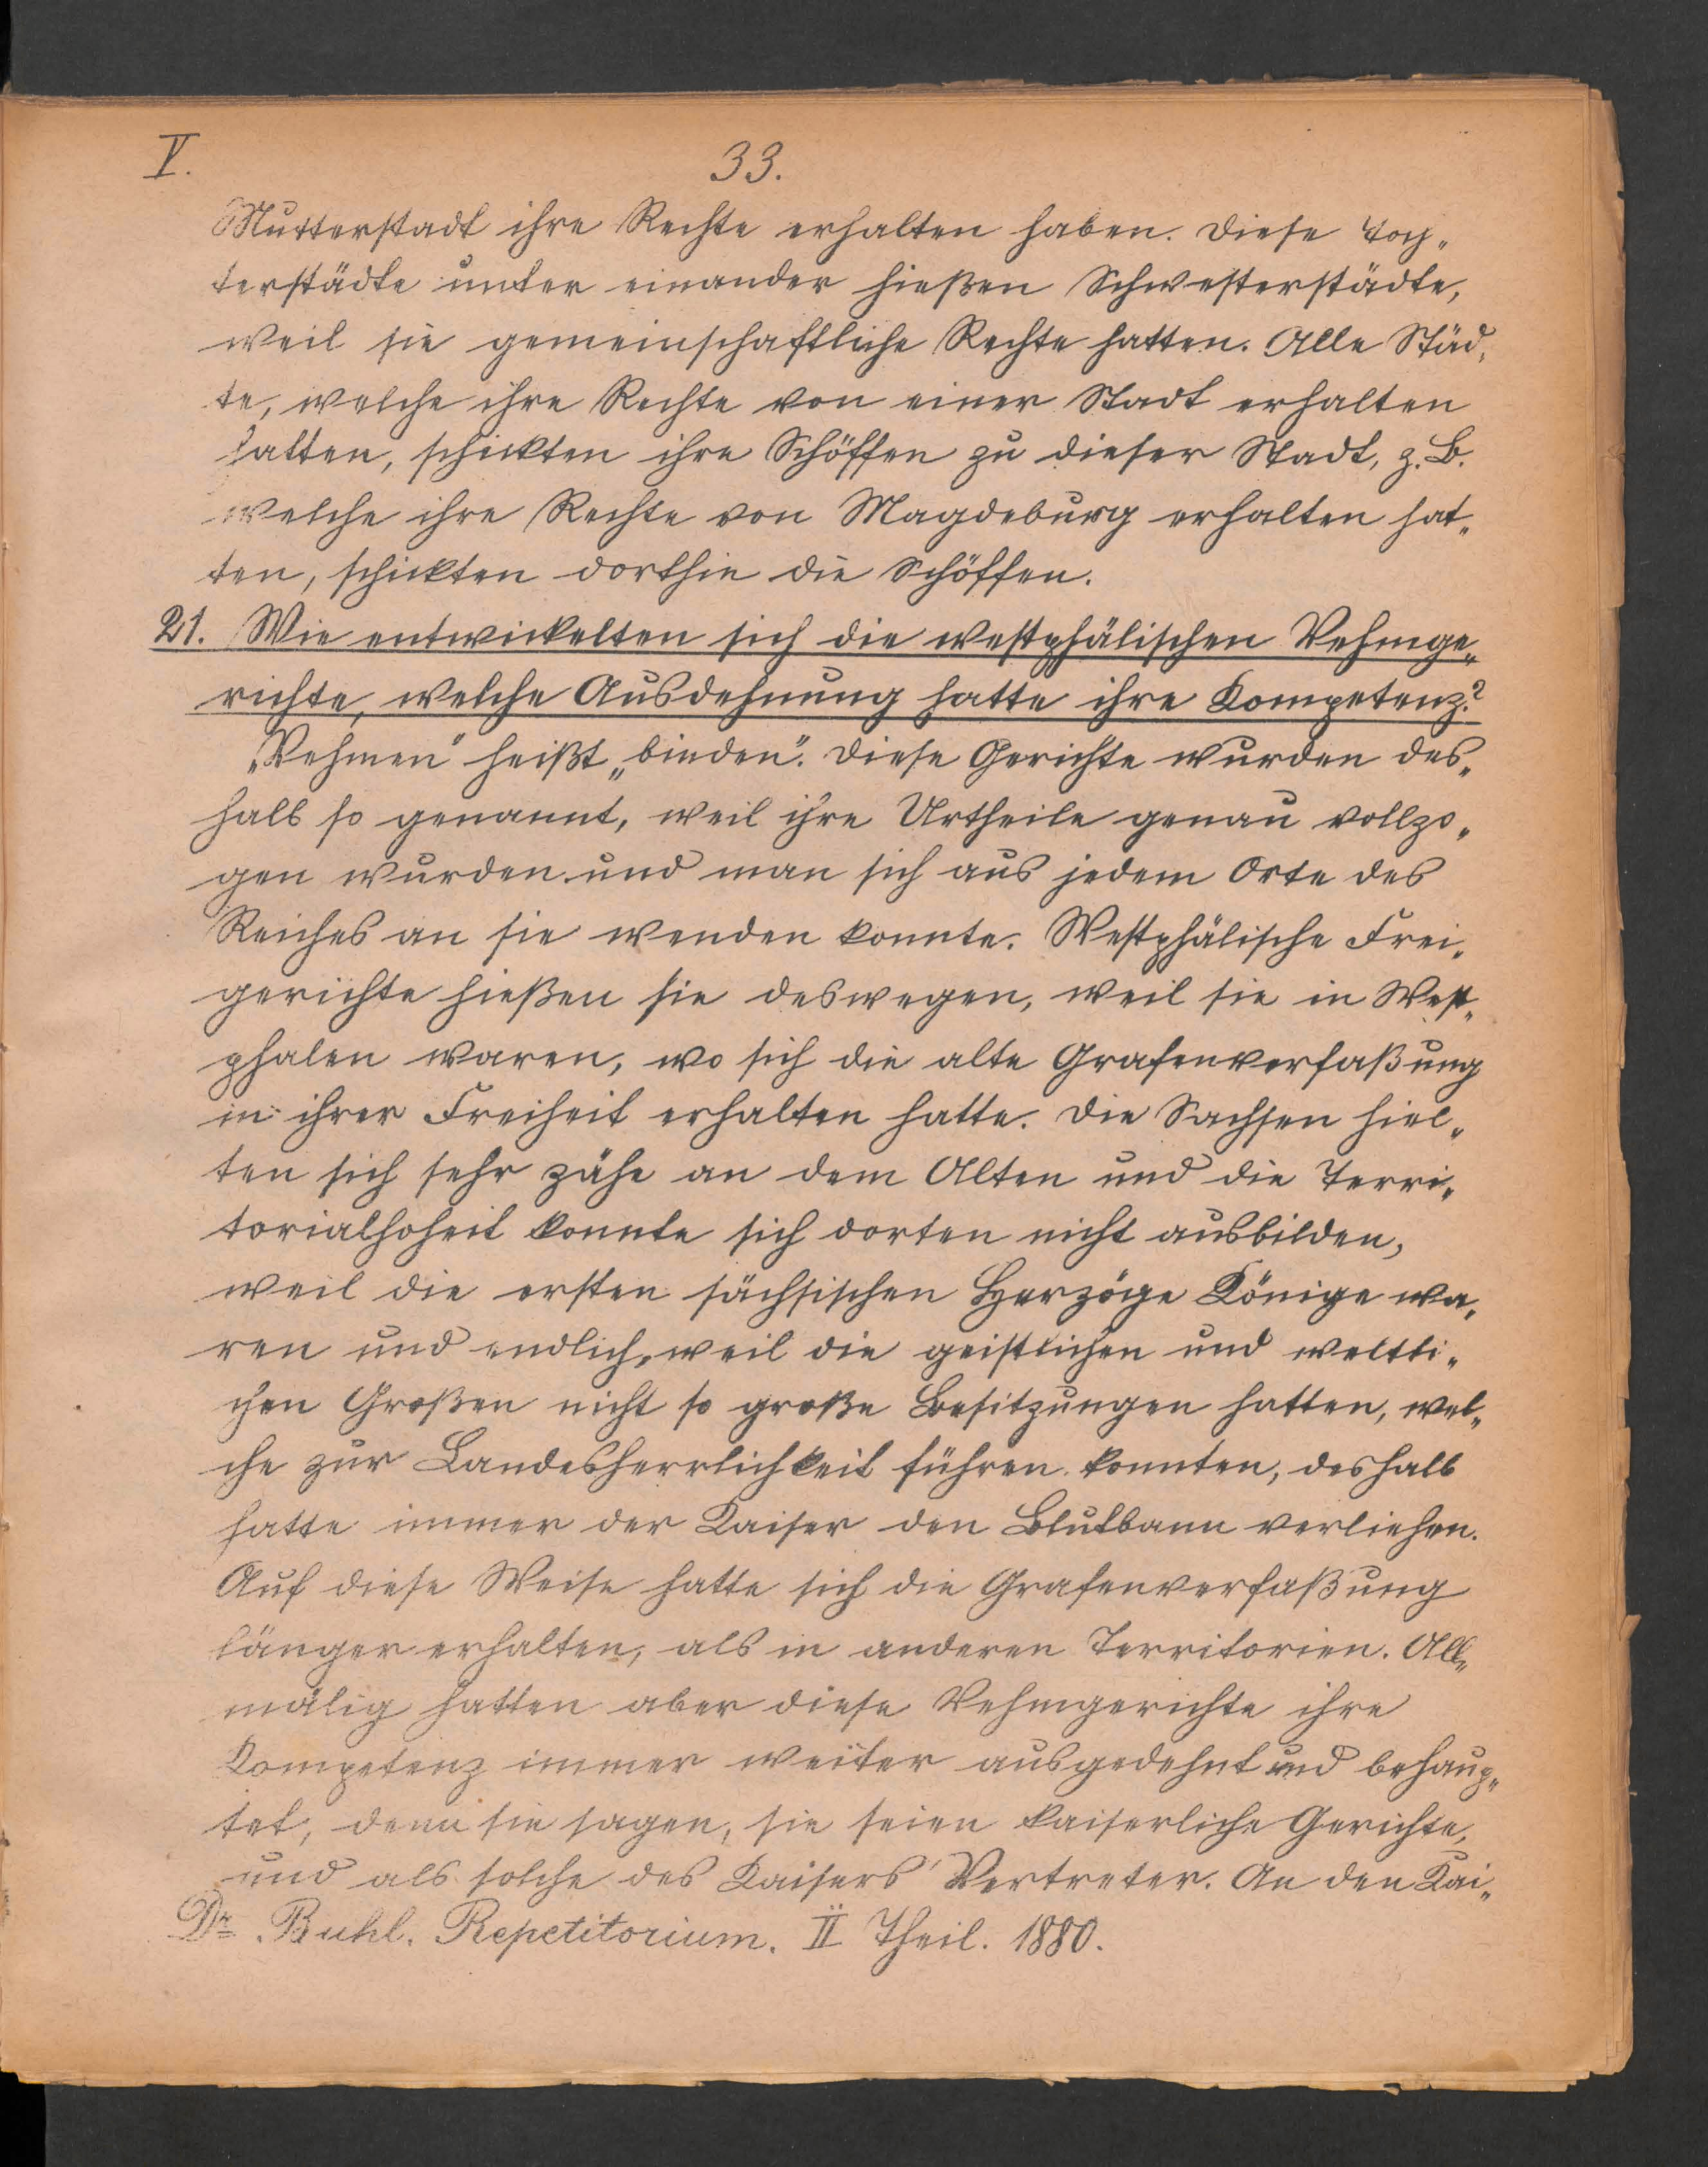 V.
33.
Mutterstadt ihre Rechte erhalten haben. Diese Toch„
terstädte unter einander hießen Schwesterstädte,
weil sie gemeinschaftliche Rechte hatten. Alle Städ„
te, welche ihre Rechte von einer Stadt erhalten
hatten, schickten ihre Schöffen zu dieser Stadt, z. B.
welche ihre Rechte von Magdeburg erhalten hat„
ten, schickten dorthin die Schöffen.
21. Wie entwickelten sich die westphälischen Vehmge„
richte, welche Ausdehnung hatte ihre Kompetenz?
„Vehmen" heißt „binden". Diese Gerichte wurden des„
halb so genannt, weil ihre Urtheile genau vollzo„
gen wurden und man sich aus jedem Orte des
Reiches an sie wenden konnte. Westphälische Frei„
gerichte hießen sie deswegen, weil sie in West„
phalen waren, wo sich die alte Grafenverfaßung
in ihrer Freiheit erhalten hatte. Die Sachsen hiel„
ten sich sehr zähe an dem Alten und die Terri„
torialhoheit konnte sich dorten nicht ausbilden,
weil die ersten sächsischen Herzöge Könige wa„
ren und endlich, weil die geistlichen und weltli„
chen Großen nicht so große Besitzungen hatten, wel„
che zur Landesherrlichkeit führen konnten, deshalb
hatte immer der Kaiser den Blutbann verliehen.
Auf diese Weise hatte sich die Grafenverfaßung
länger erhalten, als in anderen Territorien. All„
mälig hatten aber diese Vehmgerichte ihre
Kompetenz immer weiter ausgedehnt und behaup„
tet, denn sie sagen, sie seien kaiserliche Gerichte,
und als solche des Kaisers Vertreter. An den Kai„
Dr. Buhl. Repetitorium. II Theil. 1880.